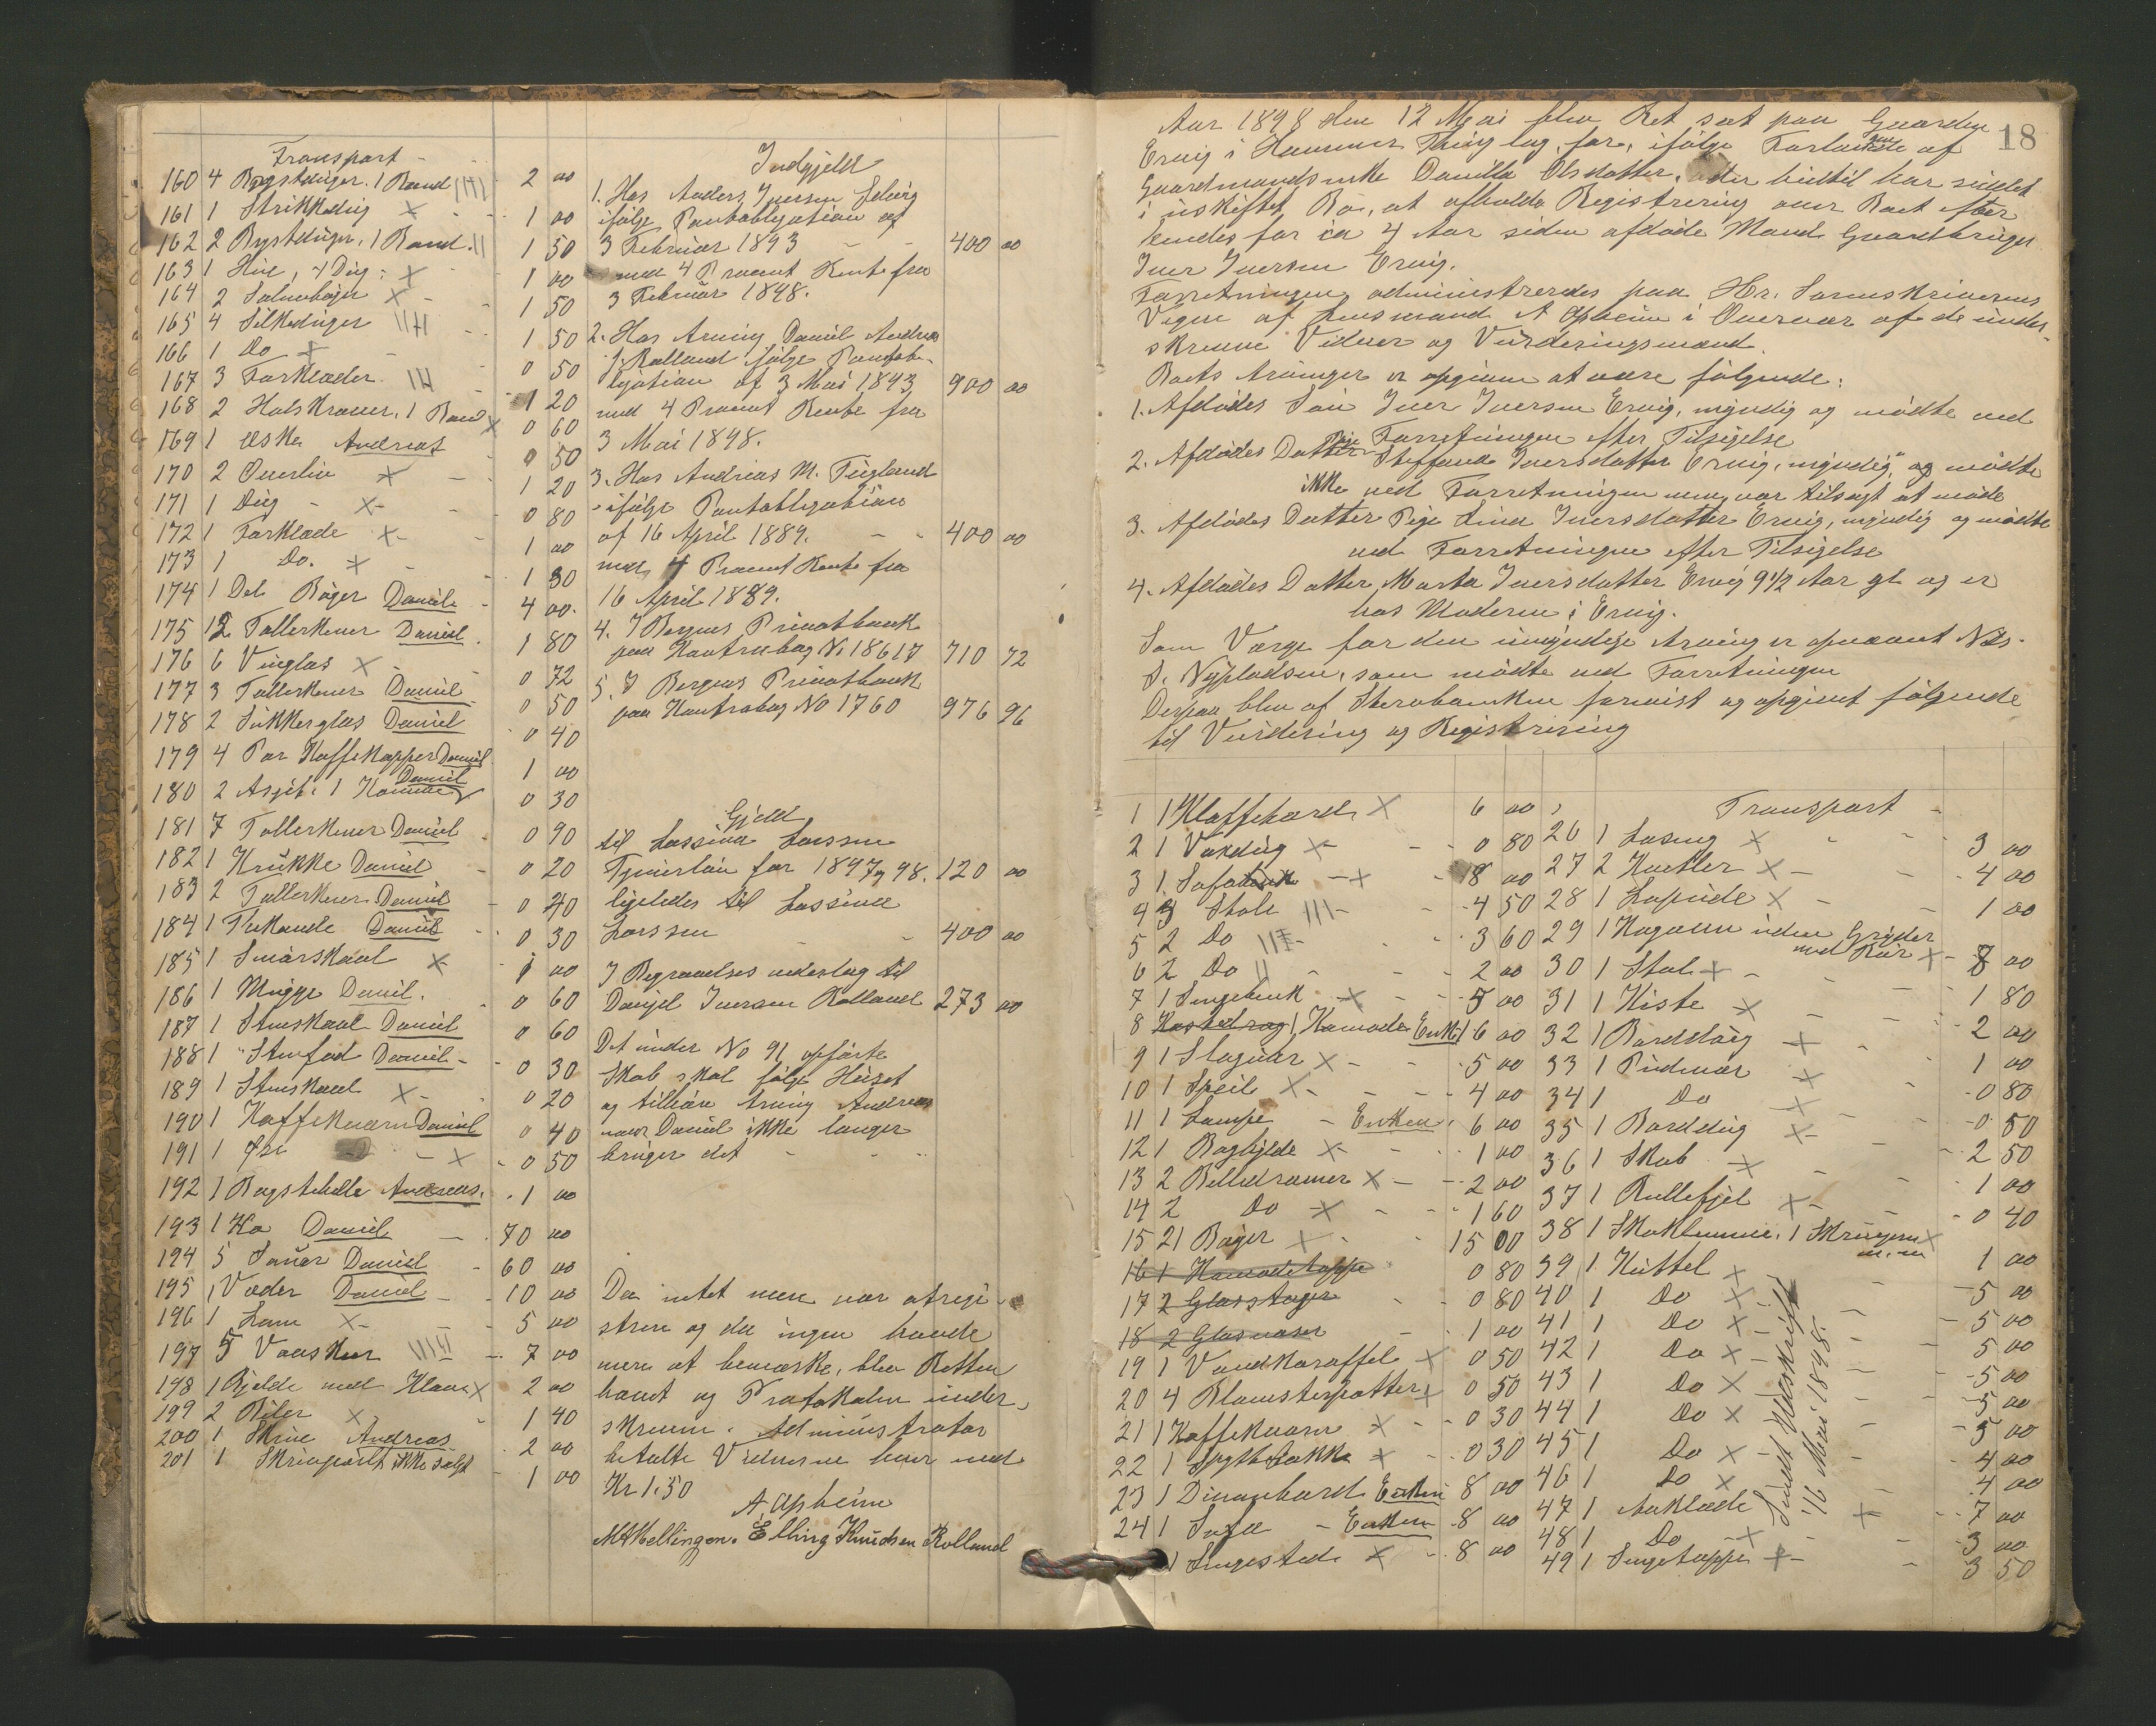 Transport -
160 4 Brystduger. 1 Baand 2 00
161 1 Strikkedug - 1 00
162 2 Brystduger, 1 Baand. 1 50
163 1 Hue, 4 Dug: 1 00
164 2 Salmebøger - 1 50
165 4 Silkeduger 1 50
166 1 Do - 0 50
167 3 Forklæder 1 20
168 2 Halskraver, 1 Baand 0 60
169 1 Æske Andreas 0 50
170 2 Overliv - 1 20
171 1 Dug - 0 80
172 1 Forklæde - 1 00
173 1 Do. - 1 30
174 1 Del Bøger Daniel - 4 00.
175 12 Tallerkener Daniel. 1 80
176 6 Vinglas - 0 72
177 3 Tallerkener Daniel 0 50
178 2 Sukkerglas Daniel 0 40
179 4 Par Kaffekopper Daniel 1 00
180 2 Asjet. 1 Daniel 0 30
181 7 Tallerkener Daniel 0 90
182 1 Krukke Daniel - 0 20
183 2 Tallerkener Daniel - 0 40
184 1 Thekande Daniel - 0 30
185 1 Smørskaal 1 00
186 1 Mugge Daniel. 0 60
187 1 Stenskaal Daniel 0 60
188 1 Stenfad Daniel - 0 30
189 1 Stenskaal - 0 20
190 1 Kaffekværn Daniel 0 40
191 1 Øse - 0 50
192 1 Bogstehelle Andreas. 1 00
193 1 Ko Daniel - 70 00
194 5 Sauer Daniel - 60 00
195 1 Væder Daniel - 10 00
196 1 Lam - 5 00
197 5 7 00
198 1 Bjelde med Klave 2 00
199 2 Biler 1 40
200 1 Skrin Andreas 2 00
201 1 ikke solgt - 1 00
Indgjeld
1. Hos Anders Iversen
ifølge Pantobligation af
3 Februar 1893 - - 400 00
med 4 Procent Rente fra
3 Februar 1898.
2. Hos Arving Daniel Andreas
J. Rolland ifølge Pantob-
ligation af 3 Mai 1893 900 00
med 4 Procent Rente fra
3 Mai 1898.
3. Hos Andreas M. Teigland
ifølge Pantobligation
af 16 April 1889. - - 400 00
med 4 Procent Rente fra
16 April 1889.
4. I Bergens Privatbank
paa Kontrabog No 18617 710 72
5. I Bergens Privatbank
paa Kontrabog No 1760 976 96
Gjeld
til Lassina Larssen
Tjenerløn for 1897 og 98. 120 00
ligeledes til Lassina
Larssen - - 400 00
I Begravelses udeslag til
Daniel Iversen Rolland 273 00
Det under No 91 opførte
Skab skal følge Huset
og tilhøre Arving Andreas
naar Daniel ikke længer
bruger det - - -
Da intet mere var at regi-
strere og da ingen havde
mere at bemærke, blev Retten
hævet og Protokollen under-
skreven. Administrator
betalte Vidnerne hver med
Kr 1.50
A Opheim
Elling Knudsen Rolland
18
Aar 1898 den 12 Mai blev Ret sat paa Gaarden
Ervig i Hammer Thinglag, for, ifølge Forlangende af
Gaardmandsenke Danilla Olsdatter, der hidtil har siddet
i uskiftet Bo, at afholde Registrering over Boet efter
hendes for ca 4 Aar siden afdøde Mand Gaardbruger
Iver Iversen Ervig.
Forretningen administreredes paa Hr. Sorenskriverens
Vegne af Lensmand A Opheim i Overvær af de under-
skrevne Vidner og Vurderingsmænd.
Boets Arvinger er opgivne at være følgende:
1. Afdødes Søn Iver Iversen Ervig, myndig og mødte ved
Forretningen efter Tilsigelse
2. Afdødes Datter Pige Steffana Iversdatter Ervig, myndig, og mødte
ikke ved Forretningen men var tilsagt at møde
3. Afdødes Datter Pige Lina Iversdatter Ervig, myndig og mødte
ved Forretningen efter Tilsigelse
4. Afdødes Datter Marta Iversdatter Ervig 9 1/2 Aar gl og er
hos Moderen i Ervig.
Som Værge for den umyndige Arving er opnævnt Nils
S. Nypladsen, som mødte ved Forretningen
Derpaa blev af Stervboenken forevist og opgivet følgende
til Vurdering og Registrering
1 1 Klaffebord 6 00
2 1 Voxdug - 0 80
3 1 Sofabænk - 8 00
4 3 Stole - 4 50
5 2 Do - 3 60
6 2 Do - 2 00
7 1 Sengebænk - 5 00
8 1 Komode Enken 16 00
9 1 Slaguhr - 5 00
10 1 Speil - 4 00
11 1 Lampe - Enken. 6 00
12 1 Boghylde - 1 00
13 2 Billedramer - 2 00
14 2 Do - 1 60
15 21 Bøger 15 00
16 1 Komodetoppe 0 80
17 2 Glasstager 0 80
18 2 Glasvaser 1 00
19 1 Vandkaraffel 0 50
20 4 Blomsterpotter 0 50
21 1 Kaffekværn 0 30
22 1 Spytbakke 0 30
23 1 Divanbord Enken 8 00
24 1 Sofa - Enken 8 00
1 Sengested - 8 00
Transport -
26 1 Lasung 3 00
27 2 - 4 00
28 1 Hopude - 1 00
29 1 Kogeovn uden Gryder
med Rør - 8 00
30 1 Stol - 1 80
31 1 Kiste - 2 00
32 1 Borddug - 1 00
33 1 Pudevar 0 80
34 1 Do - 0 50
35 1 Borddug - 2 50
36 1 Skab - 1 00
37 1 Rullefjel - 0 40
38 1 1
m.m 1 00
39 1 Kuttel 5 00
40 1 Do - 5 00
41 1 Do - 5 00
42 1 Do - 5 00
43 1 Do 5 00
44 1 Do 5 00
45 1 Do - 4 00
46 1 Do 4 00
47 1 Aaklæde 7 00
48 1 Do - 3 00
49 1 Sengeteppe - 3 50
Sendt Udskrift
16 Mai 1898.